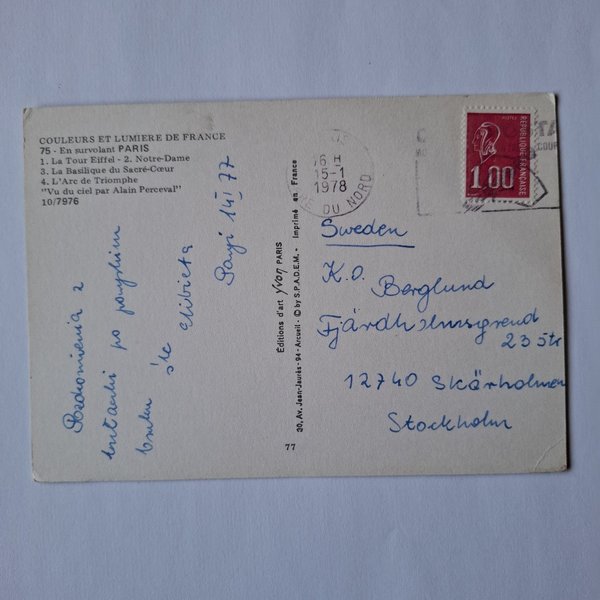 COULEURS ET LUMIERE DE FRANCE
75 - En survolant PARIS
1. La Tour Eiffel - 2. Notre-Dame
3. La Basilique du Sacré-Cœur
4. L'Arc de Triomphe
"Vu du ciel par Alain Perceval"
10/7976
Pozdrowienia z
po
Elżbieta
Paryż 14 I 77
Editions d'art Yvon PARIS
30, Av. Jean-Jaurès - 94 - Arcueil - © by S.P.A.D.E.M. - Imprimé en France
77
16 H
15-1
1978
DU NORD
REPUBLIQUE FRANÇAISE
1,00
Sweden
K.O. Berglund
Fjärdholmsgrend
23 5tr
12740 Skärholmen
Stockholm